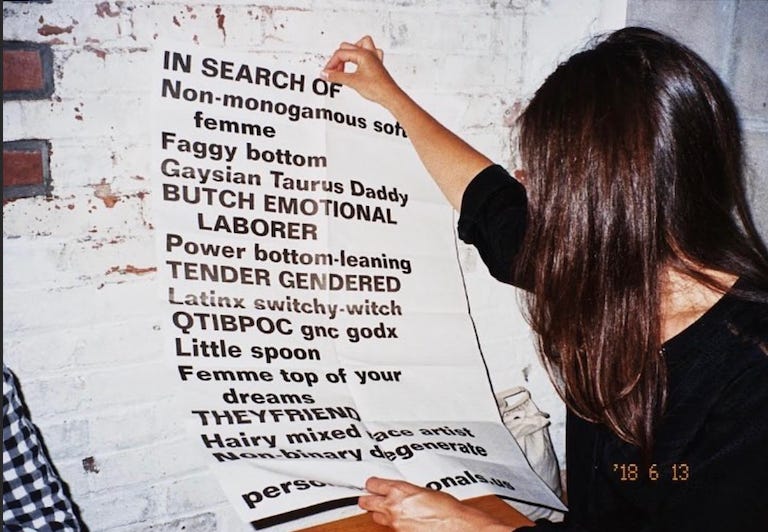 IN SEARCH OF
Non-monogamous soft
femme
Faggy bottom
Gaysian Taurus Daddy
BUTCH EMOTIONAL
LABORER
Power bottom-leaning
TENDER GENDERED
Latinx switchy-witch
QTIBPOC gnc godx
Little spoon
Femme top of your
dreams
THEYFRIEND
Hairy mixed race artist
Non-binary degenerate
onals.us
'18 6 13